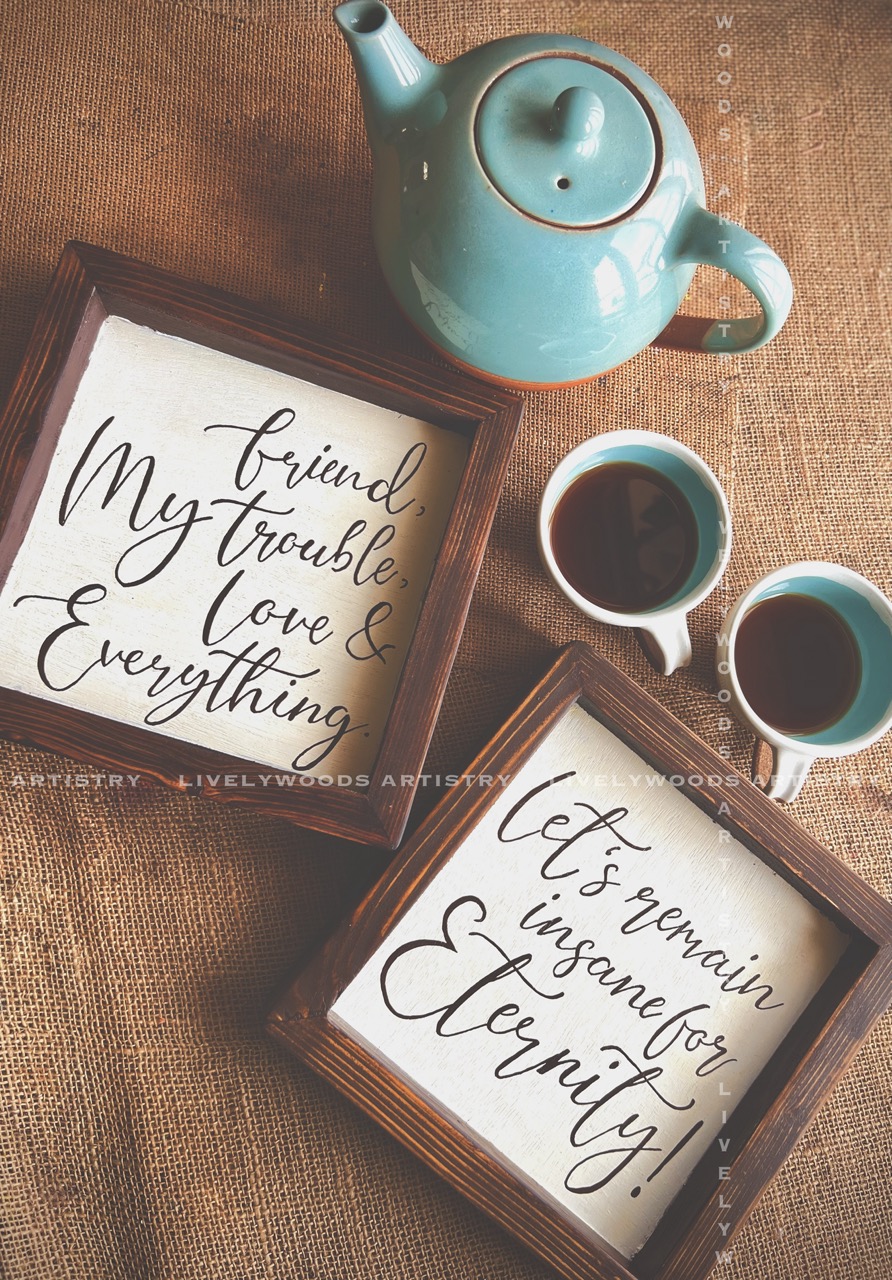 friend,
My trouble,
love &
Everything.
Let's remain
insane for
Eternity!
ARTISTRY LIVELYWOODS ARTISTRY LIVELYWOODS ARTISTRY
WOODS ARTISTRY LIVELYWOODS ARTISTRY LIVELYW